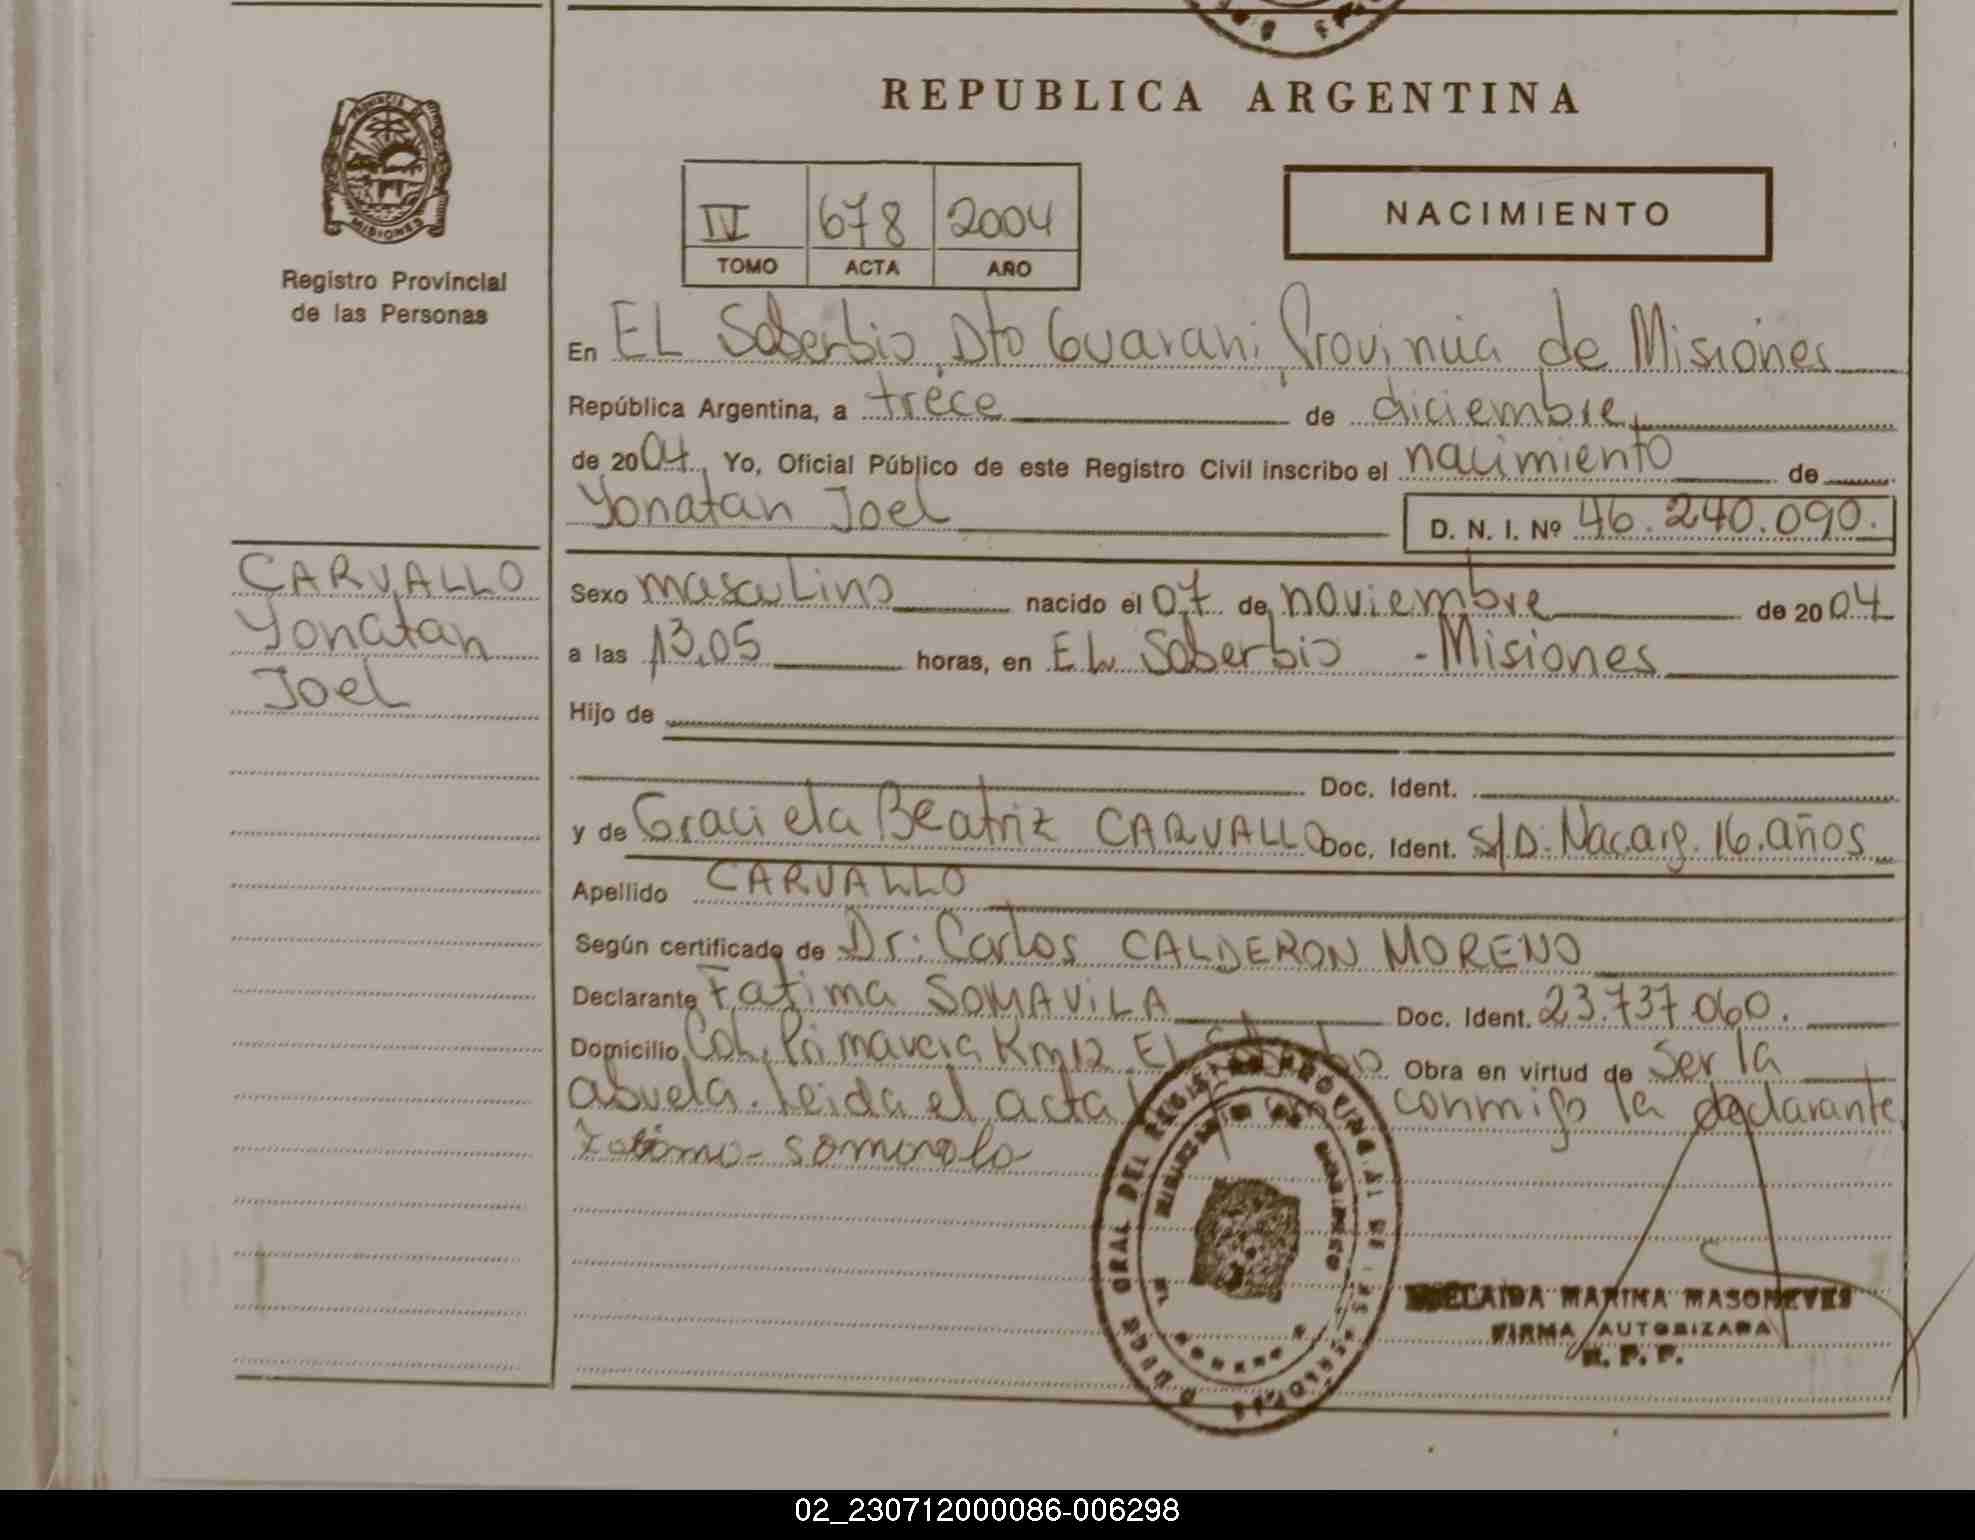 REPUBLICA ARGENTINA
PROVINCIA
MISIONES
Registro Provincial
de las Personas
IV 678 2004
TOMO ACTA AÑO
NACIMIENTO
En EL Soberbio Dto Guarani Provincia de Misiones
República Argentina, a trece de diciembre
de 2004, Yo, Oficial Público de este Registro Civil inscribo el nacimiento de
Yonatan Joel D. N. I. Nº 46.240.090.
CARVALLO
Yonatan
Joel
Sexo masculino nacido el 07 de noviembre de 2004
a las 13,05 horas, en EL Soberbio - Misiones
Hijo de
Doc. Ident.
y de Graciela Beatriz CARVALLO Doc. Ident. S/D. Nac. arg. 16 años
Apellido CARVALLO
Según certificado de Dr: Carlos CALDERON MORENO
Declarante Fatima SOMAVILA Doc. Ident. 23.737.060.
Domicilio Col. Primavera Km 12 El Soberbio Obra en virtud de Ser la
abuela. Leida el acta conmigo la declarante
MARINA MASONEVES
FIRMA AUTORIZADA
R. P. P.
02_230712000086-006298